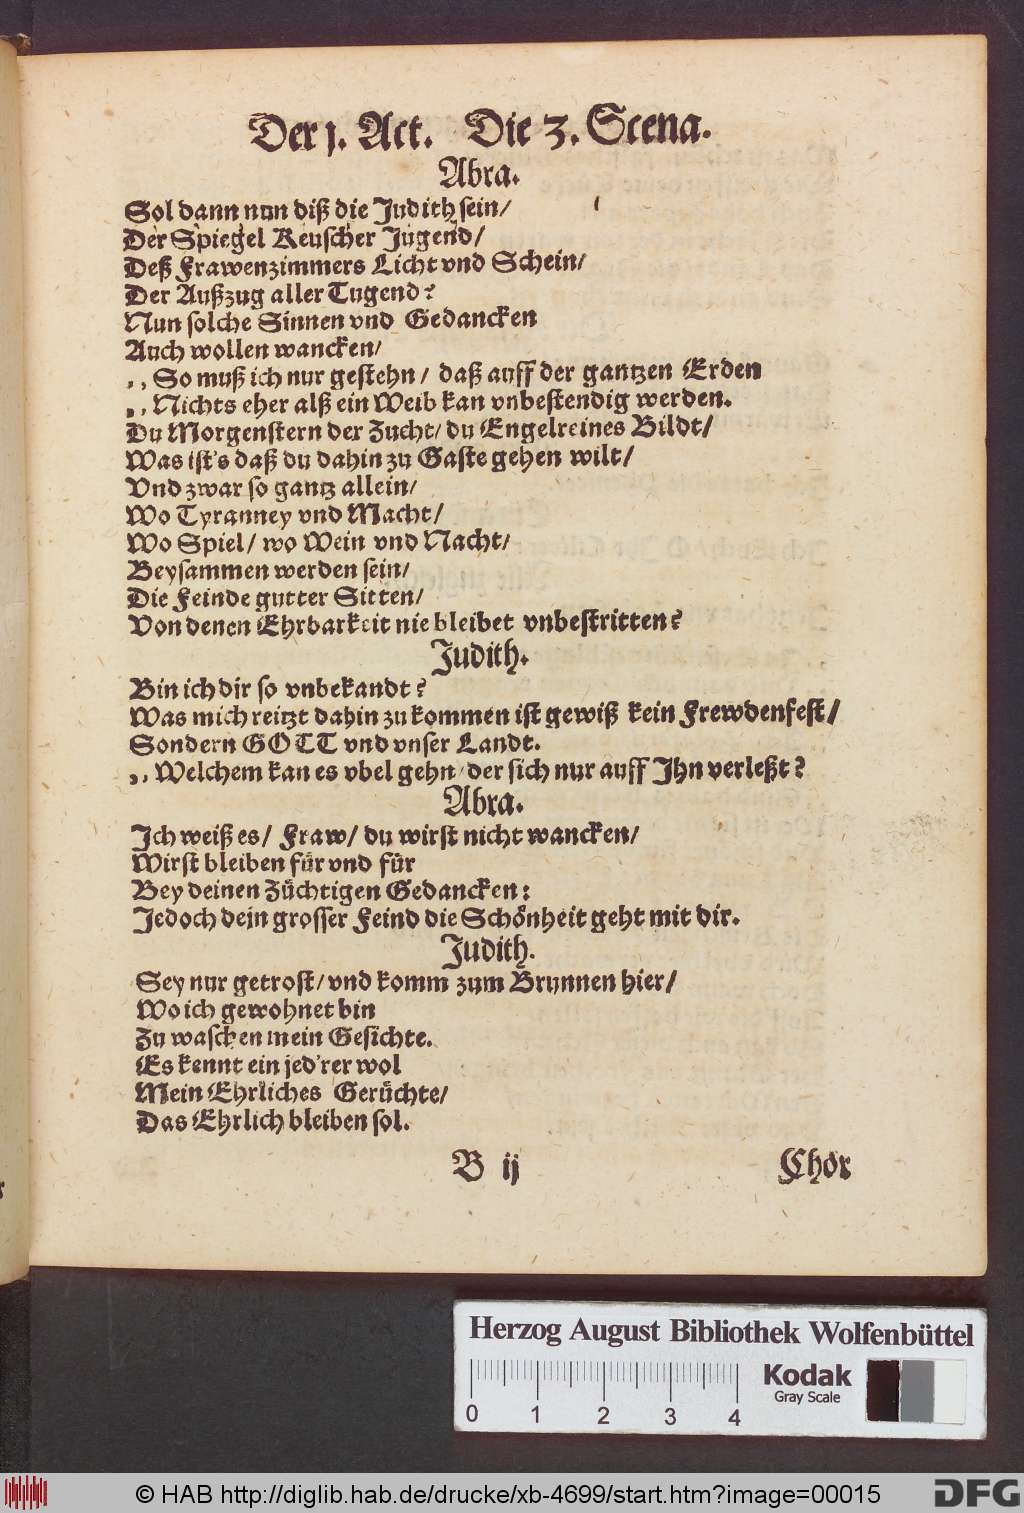 Der 1. Act. Die 3. Scena.
Abra.
Sol dann nun diß die Judith sein/
Der Spiegel Keuscher Jugend/
Deß Frawenzimmers Licht vnd Schein/
Der Außzug aller Tugend?
Nun solche Sinnen vnd Gedancken
Auch wollen wancken/
,, So muß ich nur gestehn/ daß auff der gantzen Erden
,, Nichts eher alß ein Weib kan vnbestendig werden.
Du Morgenstern der Zucht/ du Engelreines Bildt/
Was ist's daß du dahin zu Gaste gehen wilt/
Vnd zwar so gantz allein/
Wo Tyranney vnd Macht/
Wo Spiel/ wo Wein vnd Nacht/
Beysammen werden sein/
Die Feinde gutter Sitten/
Von denen Ehrbarkeit nie bleibet vnbestritten?
Judith.
Bin ich dir so vnbekandt?
Was mich reitzt dahin zu kommen ist gewiß kein Frewdenfest/
Sondern GOTT vnd vnser Landt.
,, Welchem kan es vbel gehn/ der sich nur auff Jhn verleßt?
Abra.
Jch weiß es/ Fraw/ du wirst nicht wancken/
Wirst bleiben für vnd für
Bey deinen Züchtigen Gedancken:
Jedoch dein grosser Feind die Schönheit geht mit dir.
Judith.
Sey nur getrost/ vnd komm zum Brunnen hier/
Wo ich gewohnet bin
Zu waschen mein Gesichte.
Es kennt ein jed'rer wol
Mein Ehrliches Gerüchte/
Das Ehrlich bleiben sol.
B ij Chor
Herzog August Bibliothek Wolfenbüttel
Kodak
Gray Scale
0 1 2 3 4
© HAB http://diglib.hab.de/drucke/xb-4699/start.htm?image=00015
DFG